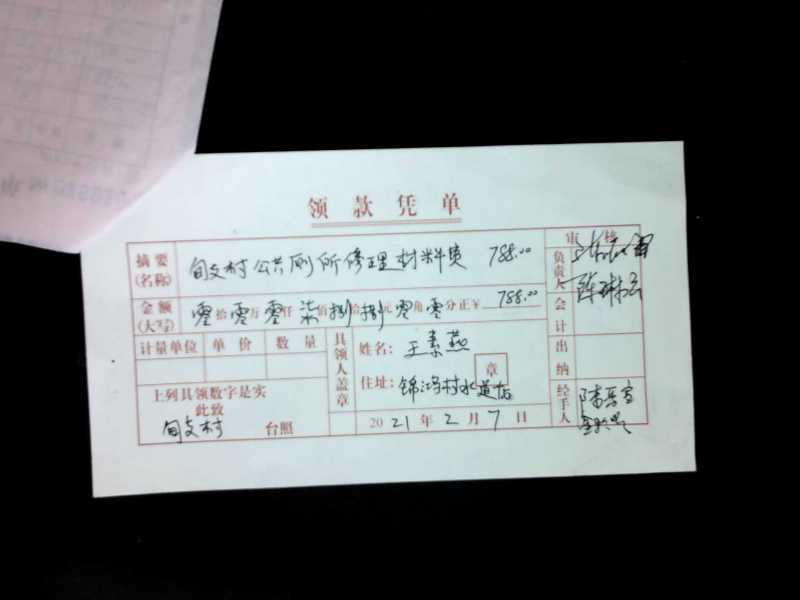 领款凭单
摘要(名称) 旬支村公共厕所修理材料费 788.00
金额(大写) 零拾零万零仟柒佰捌拾捌元零角零分正¥788.00
计量单位 单价 数量
上列具领数字是实
此致
旬支村 台照
具领人盖章
姓名:王素燕
住址:锦鸿村水道店
章
2021年2月7日
审核
负责人
会计
出纳
经手人